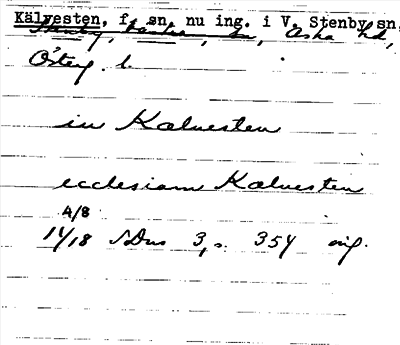 Kälvesten, f. sn, nu ing. i V. Stenby sn,
Stenby, Västra, sn, Aska hd,
Österg. l.
in Kaluesten
ecclesiam Kaluesten
4/8
14/18 SDns 3, s. 354 orig.